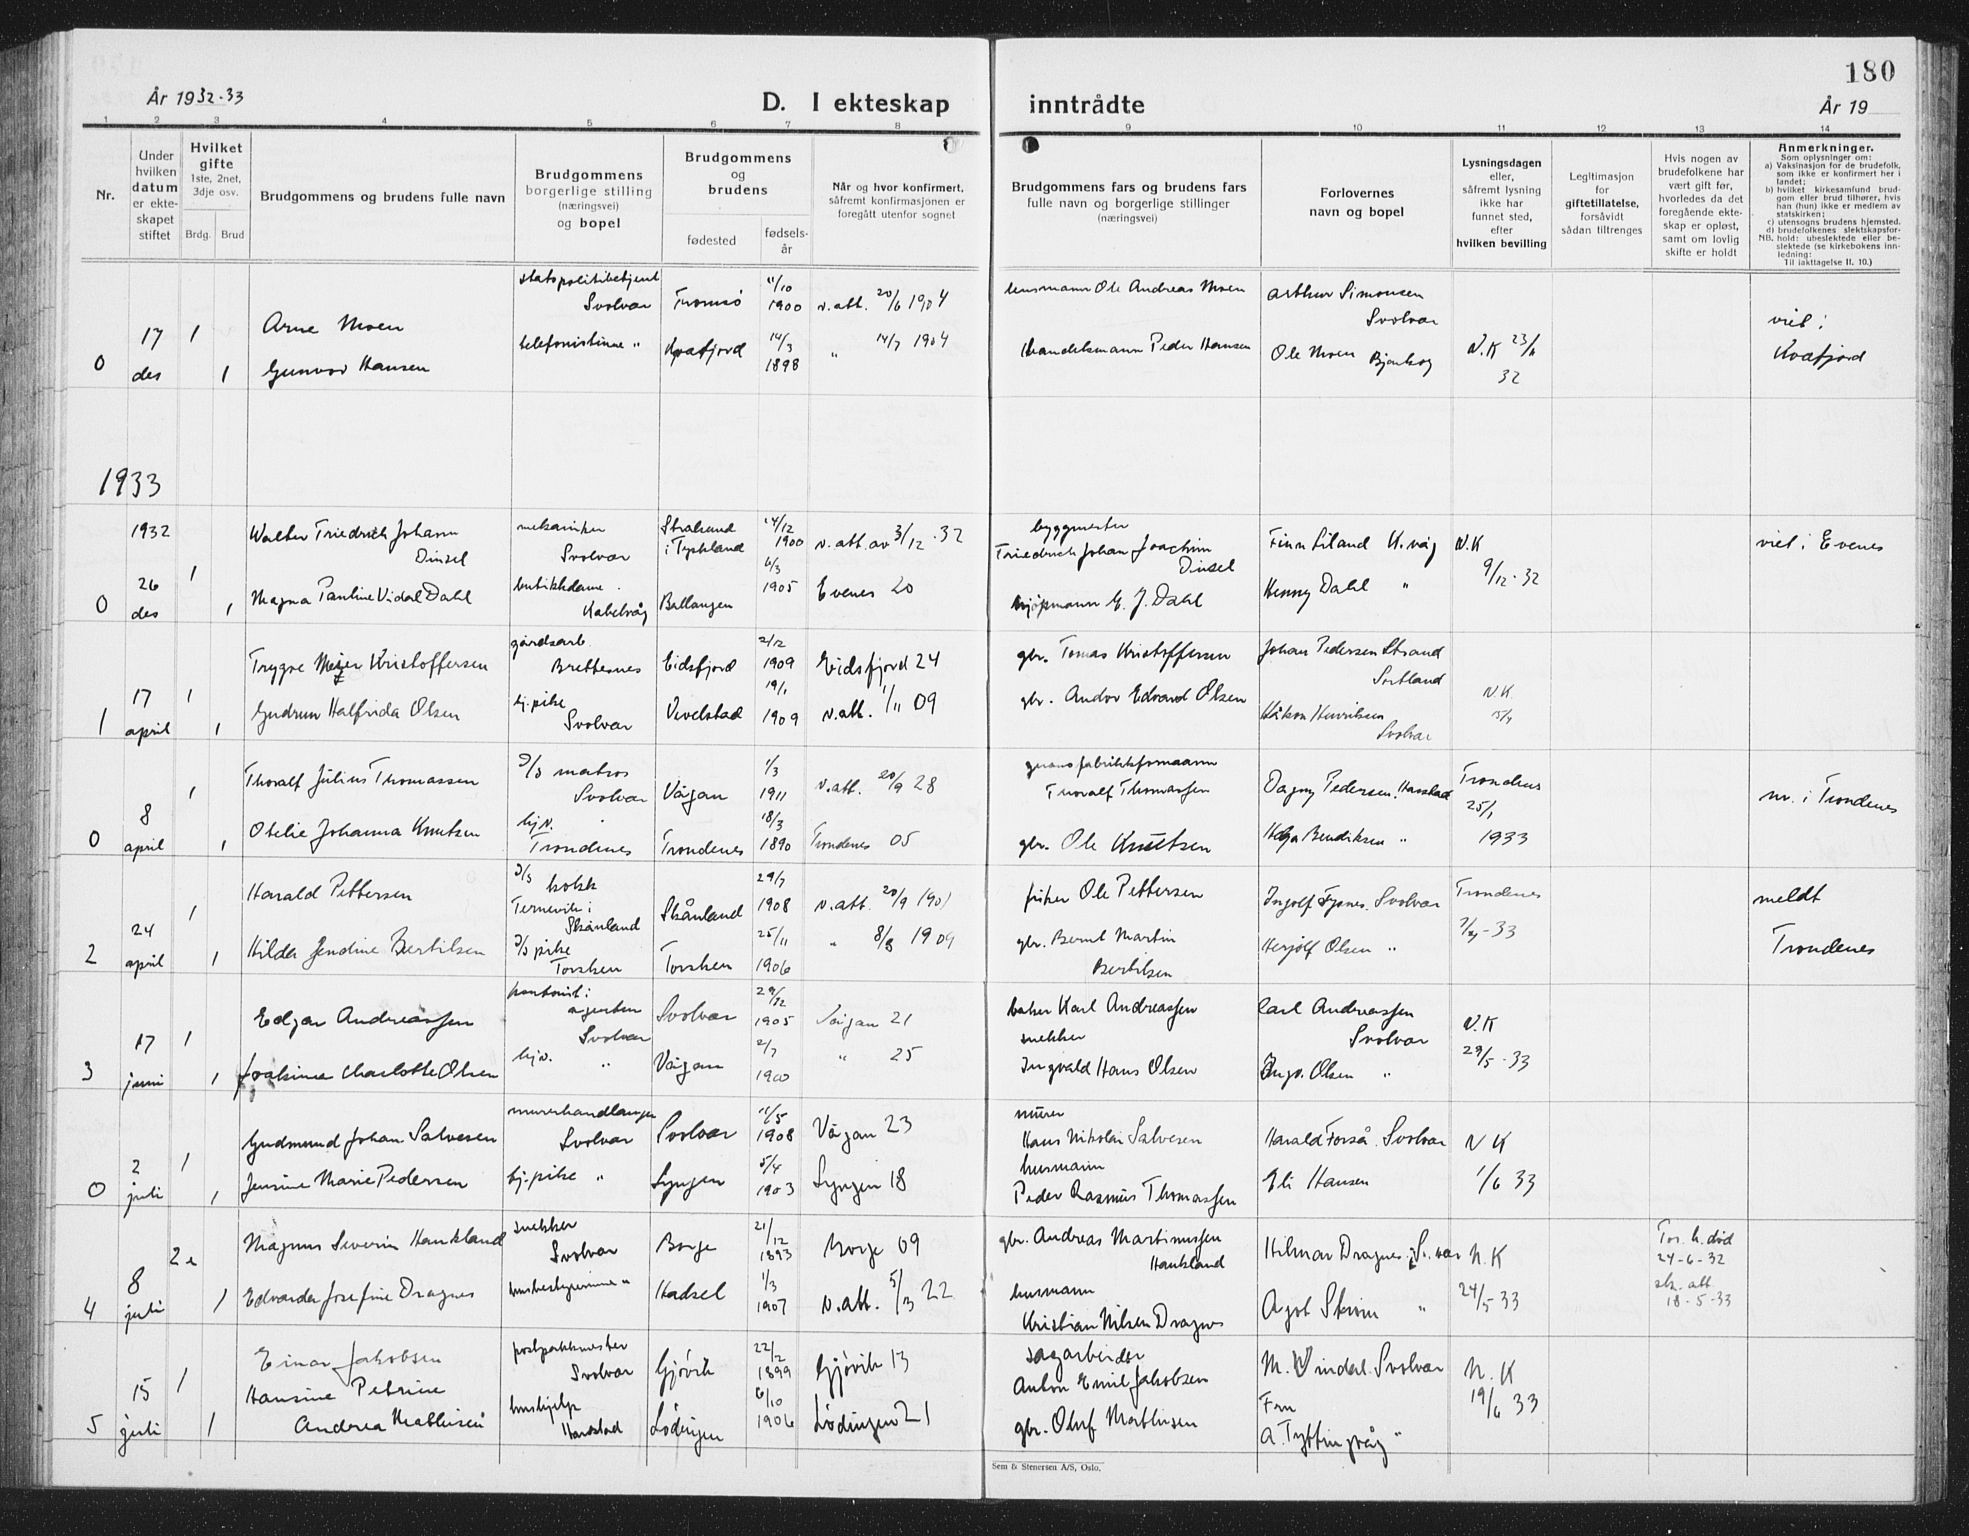 180
År 1932-33
D. I ekteskap inntrådte
År 19
1 2 3 4 5 6 7 8 9 10 11 12 13 14
Nr.
Under hvilken datum er ekteskapet stiftet
Hvilket gifte
1ste, 2net, 3dje osv.
Brdg. Brud
Brudgommens og brudens fulle navn
Brudgommens borgerlige stilling (næringsvei) og bopel
Brudgommens og brudens
fødested
fødselsår
Når og hvor konfirmert, såfremt konfirmasjonen er foregått utenfor sognet
Brudgommens fars og brudens fars fulle navn og borgerlige stillinger (næringsvei)
Forlovernes navn og bopel
Lysningsdagen eller, såfremt lysning ikke har funnet sted, efter hvilken bevilling
Legitimasjon for giftetillatelse, forsåvidt sådan tiltrenges
Hvis nogen av brudefolkene har vært gift før, hvorledes da det foregående ekteskap er opløst, samt om lovlig skifte er holdt
Anmerkninger.
Som oplysninger om:
a) Vaksinasjon for de brudefolk, som ikke er konfirmert her i landet;
b) hvilket kirkesamfund brudgom eller brud tilhører, hvis han (hun) ikke er medlem av statskirken;
c) utensogns brudens hjemsted.
d) brudefolkenes slektskapsforhold: ubeslektede eller beslektede (se kirkebokens innledning:
NB.
Til iakttagelse II. 10.)
0 17 des 1 1
Arne Moen
statspolitibetjent Svolvær Tromsø 11/10 1900 v. att. 20/6 1904
lensmann Ole Andreas Moen
Arthur Simonsen Svolvær
Gunvor Hansen
telefonistinne " Kvæfjord 14/3 1898 " 14/7 1904
Handelsmann Peder Hansen
Ole Moen
N.K 23/11 32
viet i Kvæfjord
1933
0 1932 26 des 1 1
Walter Friedrich Johann Dinsel
mekaniker Svolvær Stralsund i Tyskland 14/12 1900 v. att. av 3/12-32
byggmester Friedrich Johan Joachim Dinsel
Finn Liland K.våg
N.K 9/12-32
viet i Evenes
Magna Pauline Vidal Dahl
butikkdame Kabelvåg Ballangen 6/3 1905 Evenes 20
kjøpmann G. J. Dahl
Henny Dahl "
1 17 april 1 1
Trygve Meier Kristoffersen
gårdsarb. Brettesnes Eidsfjord 2/12 1909 Eidsfjord 24
gbr. Tomas Kristoffersen
Johan Pedersen Strand Sortland
Gudrun Halfrida Olsen
hj.pike Svolvær Vevelstad 19/1 1909 v. att. 1/11 09
gbr. Andor Edvard Olsen
Håkon Henriksen Svolvær
N.K.
0 8 april 1 1
Thoralf Julius Thomassen
D/S matros Svolvær Vågan 1/3 1911 v. att. 20/9 28
guanofabrikkformann Thoralf Thomassen
Dagny Pedersen. Harstad
Trondenes 25/1 1933
nr. i Trondenes
Otelie Johanna Knutsen
hjv. Trondenes Trondenes 18/3 1890 Trondenes 05
gbr. Ole Knutsen
Helga Bendiksen "
2 24 april 1 1
Harald Pettersen
D/S kokk Ternevik i Skånland Skånland 29/7 1908 v. att. 20/9 1901
fisker Ole Pettersen
Ingolf Fygnes. Svolvær
Trondenes
meldt Trondenes
Hilda Jendine Bertilsen
D/S pike Torsken Torsken 25/11 1906 " 8/8 1909
gbr. Bernt Martin Bertilsen
Herjolf Olsen "
3 17 juni 1 1
Edgar Andreassen
kontorist i agentur Svolvær Svolvær 29/12 1905 Vågan 21
baker Karl Andreassen
Carl Andreassen Svolvær
N.K 29/5-33
Joakime Charlotte Olsen
hjv. " Vågan 2/7 1900 " 25
snekker Ingvald Hans Olsen
Ingv. Olsen "
0 2 juli 1 1
Gudmund Johan Salvesen
murerhandlanger Svolvær Svolvær 11/5 1908 Vågan 23
murer Hans Nikolai Salvesen
Harald Forså. Svolvær
N K 1/6 33
Jensine Marie Pedersen
hj.pike " Lyngen 5/4 1903 Lyngen 18
husmann Peder Rasmus Thomassen
Eli Hansen
4 8 juli 2e 1
Magnus Severin Haukland
snekker Svolvær Borge 21/12 1893 Borge 09
gbr. Andreas Martinussen Haukland
Hilmar Dragnes i Sv.vær
N.K 24/5 33
For. h. død 24-6-32 sk. att. 18-5-33
Edvarda Josefine Dragnes
husbestyrerinne " Hadsel 1/3 1907 v. att. 5/3 22
husmann Kristian Nilsen Dragnes
Agot Strøm "
5 15 juli 1 1
Einar Jakobsen
postpakkmester Svolvær Gjøvik 22/2 1899 Gjøvik 13
sagarbeider Anton Emil Jakobsen
M. Vinderl. Svolvær
N. K 19/6 33
Hansine Petrine Andrea Mathisen
hushjelp Harstad Lødingen 6/10 1906 Lødingen 21
gbr. Oluf Mathisen
Fru A. Tyttingvåg "
Sem & Stenersen A/S, Oslo.